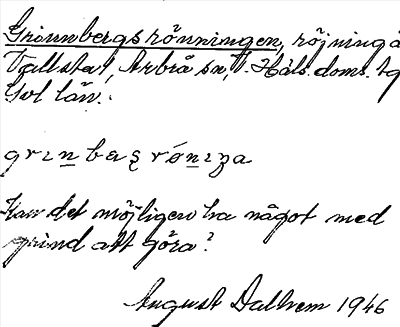 Grinnbergsrönningen, röjning å
Vallsta, Arbrå sn, V. Häls. doms. tg
Gvl län.
Kan det möjligen ha något med
grind att göra?
August Dallrem 1946